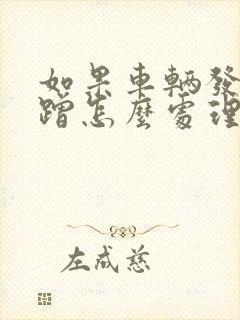 如果車輛發
蹭怎麼處理
左成慈